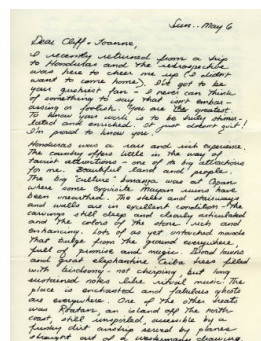 Sun.. May 6
Dear Cliff - Joanne,
I recently returned from a trip
to Honduras and the retrospective
was here to cheer me up (I didn't
want to come home). I've got to be
your gushiest fan - I never can think
of something to say that isn't embar-
assing or foolish. You are the greatest.
To know your work is to be truly stimu-
lated and enriched.
I'm proud to know you.
Honduras was a rare and rich experience.
The country offers little in the way of
tourist attractions - one of its big attractions
for me. Beautiful land and people.
The big "culture" was at Copan
where some exquisite Mayan ruins have
been unearthed. The stelas and stairways
and walls are in excellent condition - the
carvings still deep and clearly articulated
and the colors of the stone rich and
enhancing. Lots of as yet untouched mounds
that bulge from the ground everywhere,
full of promise and magic.
and great elephantine Ceiba trees filled
with birdsong - not chirping, but long
sustained notes like ritual music. The
place is enchanted and fabulous ghosts
are everywhere. One of the other treats
was Roatan, an island off the north
coast, still unspoiled, accessible by a
dirt airstrip served by planes
straight out of a drawing.